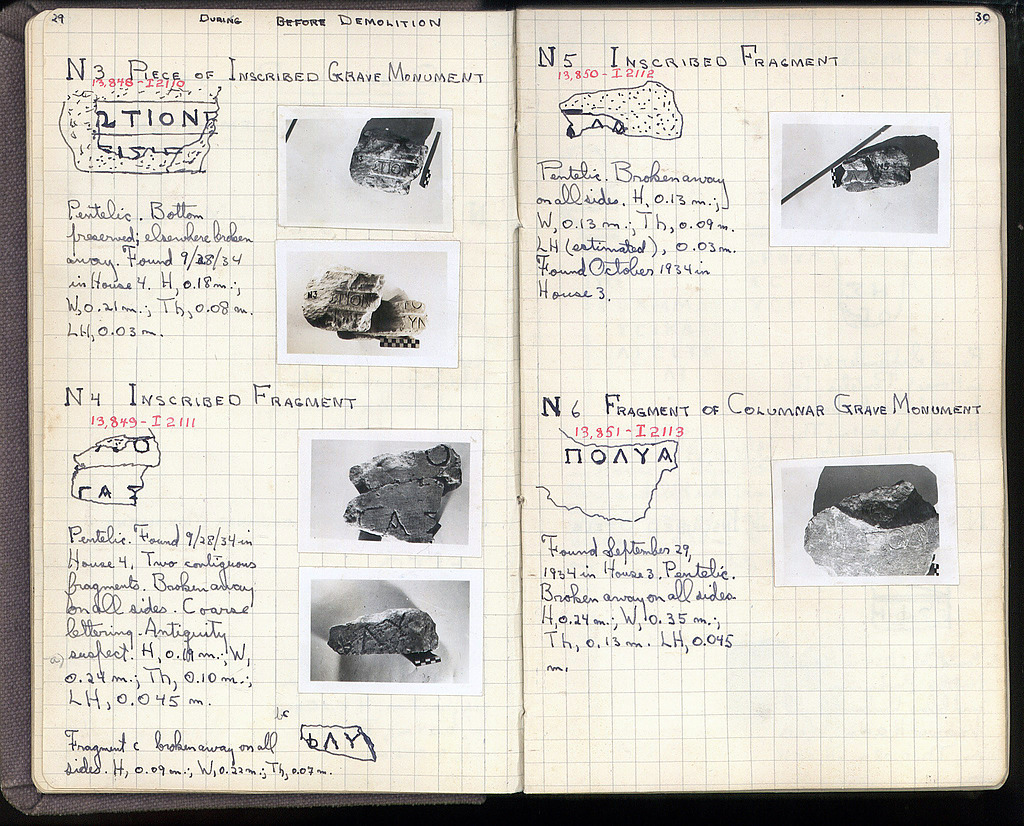 29
DURING BEFORE DEMOLITION
N3 PIECE OF INSCRIBED GRAVE MONUMENT
13,848-I 2110
ΩΤΙΟΝ
Pentelic. Bottom
preserved; elsewhere broken
away. Found 9/28/34
in House 4. H, 0.18 m.;
W, 0.21 m.; Th, 0.08 m.
LH, 0.03 m.
N3
ΤΙΟΝ
N4 INSCRIBED FRAGMENT
13,849-I 2111
Ο
ΓΑΣ
Pentelic. Found 9/28/34 in
House 4. Two contiguous
fragments. Broken away
on all sides. Coarse
lettering. Antiquity
suspect. H, 0.19 m.; W,
a)
0.24 m.; Th, 0.10 m.;
LH, 0.045 m.
Fragment c broken away on all
sides. H, 0.09 m.; W, 0.22 m.; Th, 0.07 m.
ΛΥ
30
N5 INSCRIBED FRAGMENT
13,850-I 2112
Pentelic. Broken away
on all sides. H, 0.13 m.;
W, 0.13 m.; Th, 0.09 m.
LH (estimated), 0.03 m.
Found October 1934 in
House 3.
N6 FRAGMENT OF COLUMNAR GRAVE MONUMENT
13,851-I 2113
ΠΟΛΥΑ
Found September 29,
1934 in House 3. Pentelic.
Broken away on all sides
H, 0.24 m.; W, 0.35 m.;
Th, 0.13 m. LH, 0.045
m.